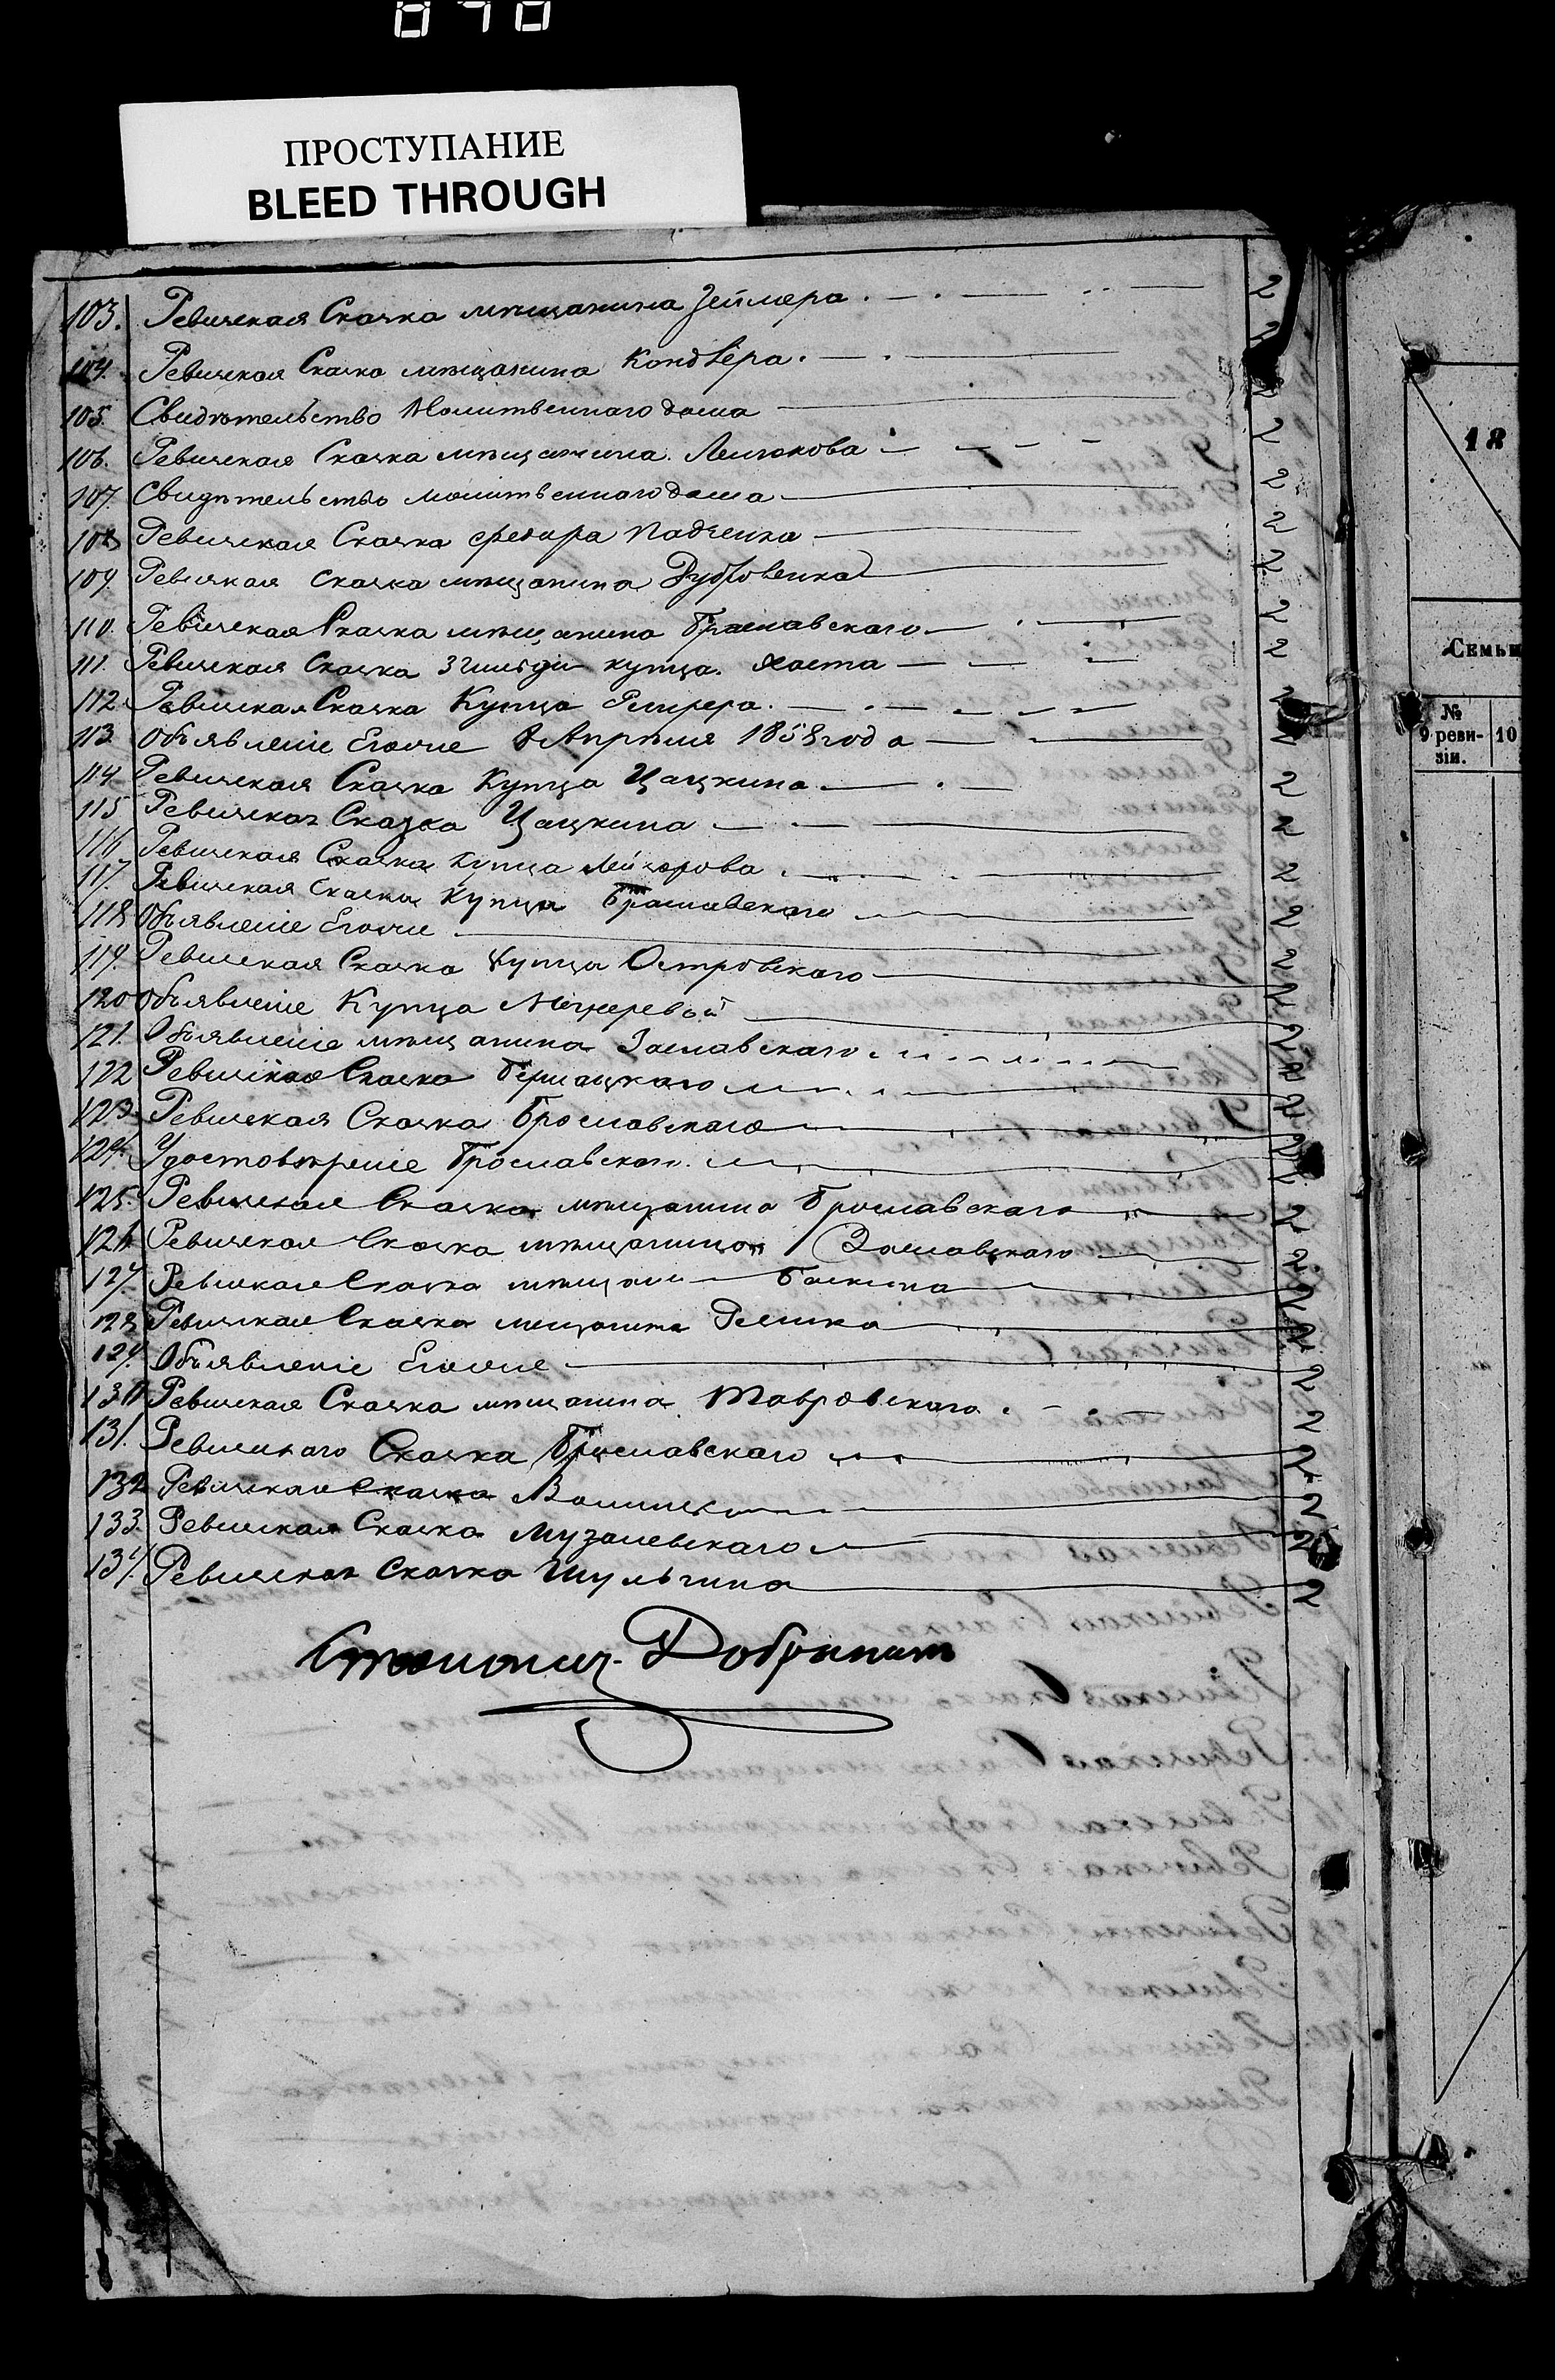 ПРОСТУПАНИЕ
BLEED THROUGH
103. Ревижская Сказка мѣщанина Зеймера 2
104. Ревижская Сказка мѣщанина Кондвера 2
105. Свидѣтельство Молитвеннаго дома 2
106. Ревижская Сказка мѣщанина 2
107. Свидѣтельство молитвеннаго дома 2
108 Ревижская Сказка 2
109. Ревижская Сказка мѣщанина Дубровенка 2
110. Ревижская Сказка мѣщанина Браславскаго 2
111. Ревижская Сказка 3 гильди купца Хаста 2
112. Ревижская Сказка Купца 2
113. Объявленіе Егоже 8 Апрѣля 1858 года 2
114 Ревижская Сказка Купца Цацкина 2
115 Ревижская Сказка Цацкина 2
116 Ревижская Сказка купца 2
117. Ревижская Сказка Купца Браславскаго 2
118 Объявленіе Егоже 2
119. Ревижская Сказка Купца Островскаго 2
120 Объявленіе Купца 2
121. Объявленіе мѣщанина Заславскаго 2
122 Ревижская Сказка 2
123. Ревижская Сказка Брославскаго 2
124. Удостовѣреніе Брославскаго 2
125. Ревижская Сказка мѣщанина Брославскаго 2
126 Ревижская Сказка мѣщанина Заславскаго 2
127. Ревижская Сказка мѣщани Баскина 2
128 Ревижская Сказка мещанина 2
129. Объявленіе Егоже 2
130 Ревижская Сказка мѣщанина Товровскаго 2
131. Сказка Браславскаго 2
132 Ревижская Сказка 2
133. Ревижская Сказка Музалевскаго 2
134. Ревижская Сказка Шульгина 2
18
Семьи
№
9 реви- 10
зіи.